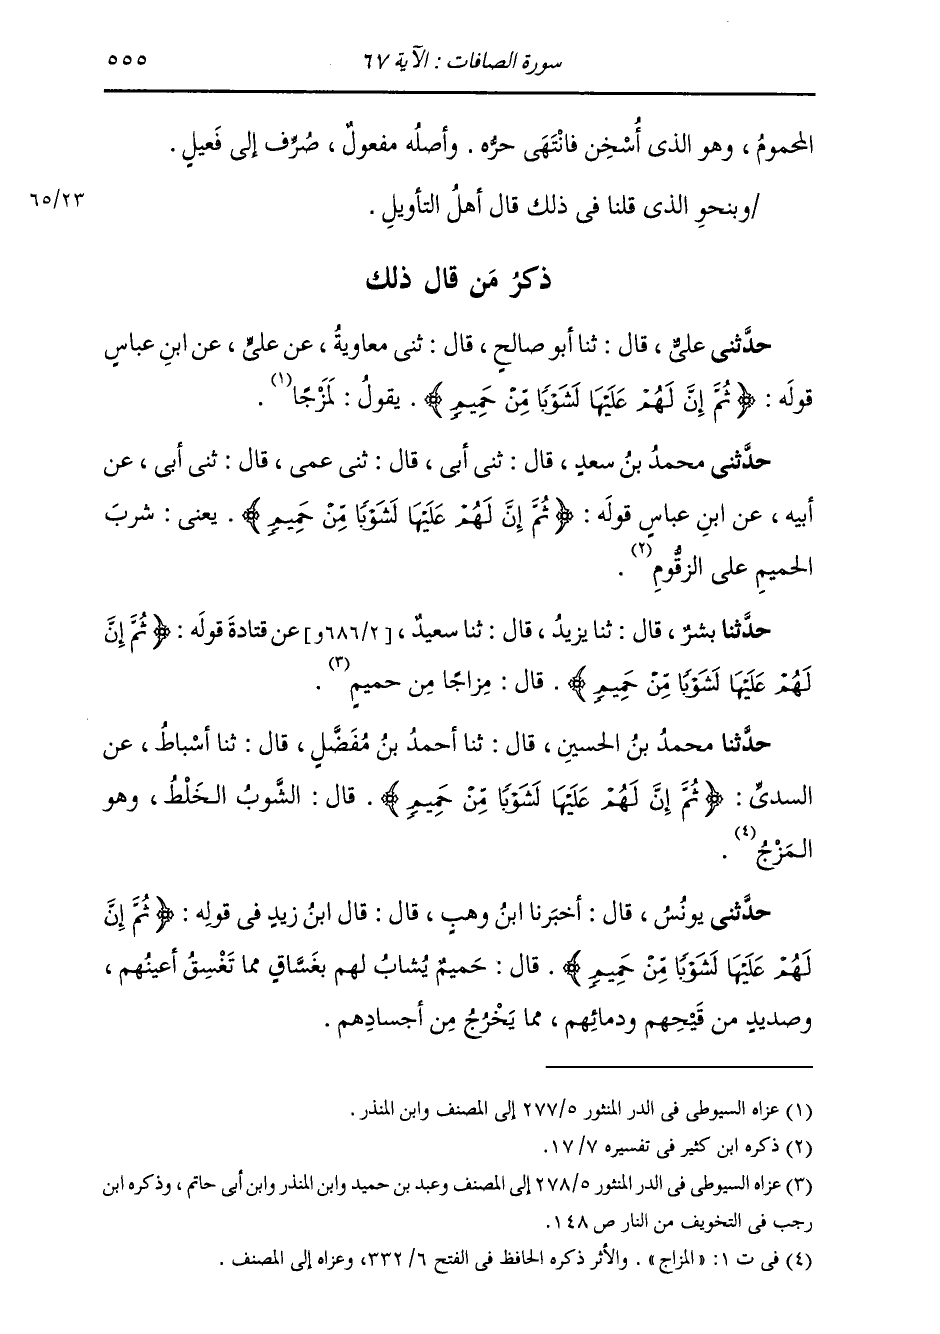 سورة الصافات : الآية ٦٧ ٥٥٥
المحمومُ ، وهو الذى أُسْخِن فانْتَهَى حرُّه . وأصلُه مفعولٌ ، صُرِّف إلى فَعيلٍ .
/وبنحوِ الذى قلنا فى ذلك قال أهلُ التأويلِ . ٦٥/٢٣
ذكرُ مَن قال ذلك
حدَّثنى علىٌّ ، قال : ثنا أبو صالحٍ ، قال : ثنى معاويةُ ، عن علىٍّ ، عن ابنِ عباسٍ
قولَه : ﴿ ثُمَّ إِنَّ لَهُمْ عَلَيْهَا لَشَوْبًا مِّنْ حَمِيمٍ ﴾ . يقولُ : لَمَزْجًا(١) .
حدَّثنى محمدُ بنُ سعدٍ ، قال : ثنى أبى ، قال : ثنى عمى ، قال : ثنى أبى ، عن
أبيه ، عن ابنِ عباسٍ قولَه : ﴿ ثُمَّ إِنَّ لَهُمْ عَلَيْهَا لَشَوْبًا مِّنْ حَمِيمٍ ﴾ . يعنى : شربَ
الحميمِ على الزقُّومِ(٢) .
حدَّثنا بشرٌ ، قال : ثنا يزيدُ ، قال : ثنا سعيدٌ ، [٦٨٦/٢و] عن قتادةَ قولَه : ﴿ ثُمَّ إِنَّ
لَهُمْ عَلَيْهَا لَشَوْبًا مِّنْ حَمِيمٍ ﴾ . قال : مِزاجًا مِن حميمٍ(٣) .
حدَّثنا محمدُ بنُ الحسينِ ، قال : ثنا أحمدُ بنُ مُفَضَّلٍ ، قال : ثنا أسْباطُ ، عن
السدىِّ : ﴿ ثُمَّ إِنَّ لَهُمْ عَلَيْهَا لَشَوْبًا مِّنْ حَمِيمٍ ﴾ . قال : الشَّوبُ الخَلْطُ ، وهو
المَزْجُ(٤) .
حدَّثنى يونُسُ ، قال : أخبَرنا ابنُ وهبٍ ، قال : قال ابنُ زيدٍ فى قولِه : ﴿ ثُمَّ إِنَّ
لَهُمْ عَلَيْهَا لَشَوْبًا مِّنْ حَمِيمٍ ﴾ . قال : حَميمٌ يُشابُ لهم بغَسَّاقٍ مما تَغْسِقُ أعينُهم ،
وصديدٍ من قَيْحِهم ودمائِهم ، مما يَخْرُجُ مِن أجسادِهم .
(١) عزاه السيوطى فى الدر المنثور ٢٧٧/٥ إلى المصنف وابن المنذر .
(٢) ذكره ابن كثير فى تفسيره ١٧/٧.
(٣) عزاه السيوطى فى الدر المنثور ٢٧٨/٥ إلى المصنف وعبد بن حميد وابن المنذر وابن أبى حاتم ، وذكره ابن
رجب فى التخويف من النار ص ١٤٨.
(٤) فى ت ١: «المزاج» . والأثر ذكره الحافظ فى الفتح ٣٣٢/٦، وعزاه إلى المصنف .